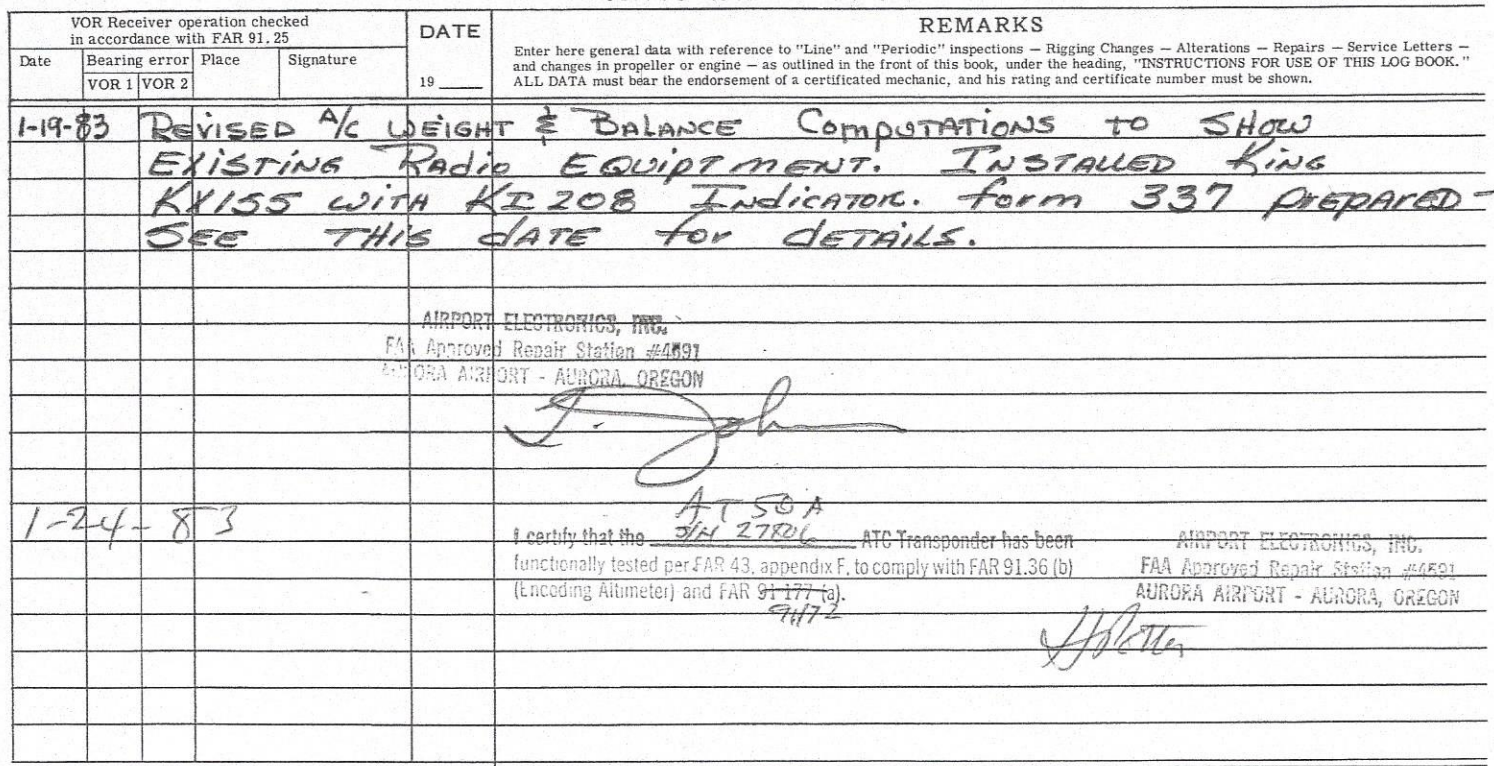 VOR Receiver operation checked
in accordance with FAR 91.25
Date Bearing error Place Signature
VOR 1 VOR 2
DATE
19
REMARKS
Enter here general data with reference to "Line" and "Periodic" inspections — Rigging Changes — Alterations — Repairs — Service Letters —
and changes in propeller or engine — as outlined in the front of this book, under the heading, "INSTRUCTIONS FOR USE OF THIS LOG BOOK."
ALL DATA must bear the endorsement of a certificated mechanic, and his rating and certificate number must be shown.
1-19-83 REVISED A/C WEIGHT & BALANCE COMPUTATIONS TO SHOW
EXISTING RADIO EQUIPTMENT. INSTALLED KING
KX155 WITH KI208 INDICATOR. FORM 337 PREPARED -
SEE THIS DATE FOR DETAILS.
AIRPORT ELECTRONICS, INC.
FAA Approved Repair Station #4591
AURORA AIRPORT - AURORA, OREGON
1-24-83
AT50A
I certify that the S/N 27806 ATC Transponder has been
functionally tested per FAR 43, appendix F, to comply with FAR 91.36 (b)
(Encoding Altimeter) and FAR 91-177 (a).
91172
AIRPORT ELECTRONICS, INC.
FAA Approved Repair Station #4591
AURORA AIRPORT - AURORA, OREGON